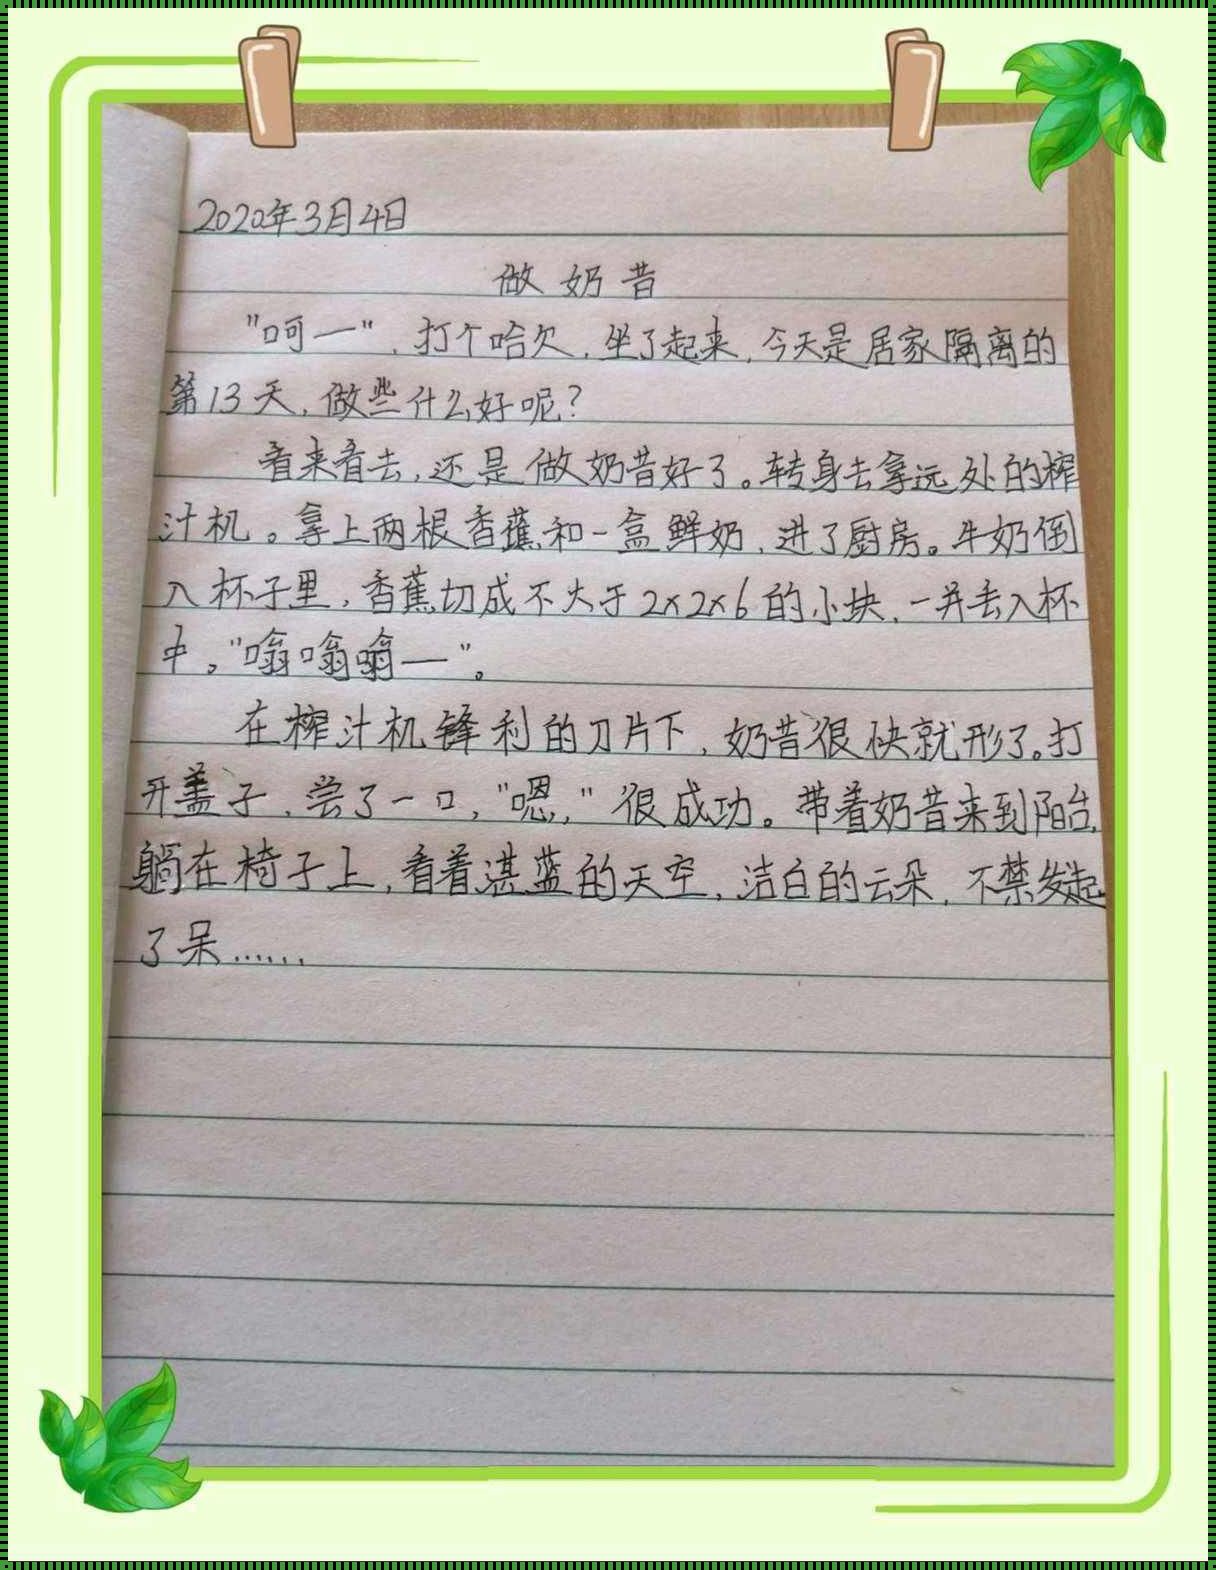 2020年3月4日
做奶昔
"呵一",打个哈欠,坐了起来,今天是居家隔离的
第13天,做些什么好呢?
看来看去,还是做奶昔好了。转身去拿远处的榨
汁机。拿上两根香蕉和一盒鲜奶,进了厨房。牛奶倒
入杯子里,香蕉切成不大于2x2x6的小块,一并丢入杯
中。"嗡嗡嗡一"。
在榨汁机锋利的刀片下,奶昔很快就形了。打
开盖子,尝了一口,"嗯,"很成功。带着奶昔来到阳台,
躺在椅子上,看着湛蓝的天空,洁白的云朵,不禁发起
了呆……